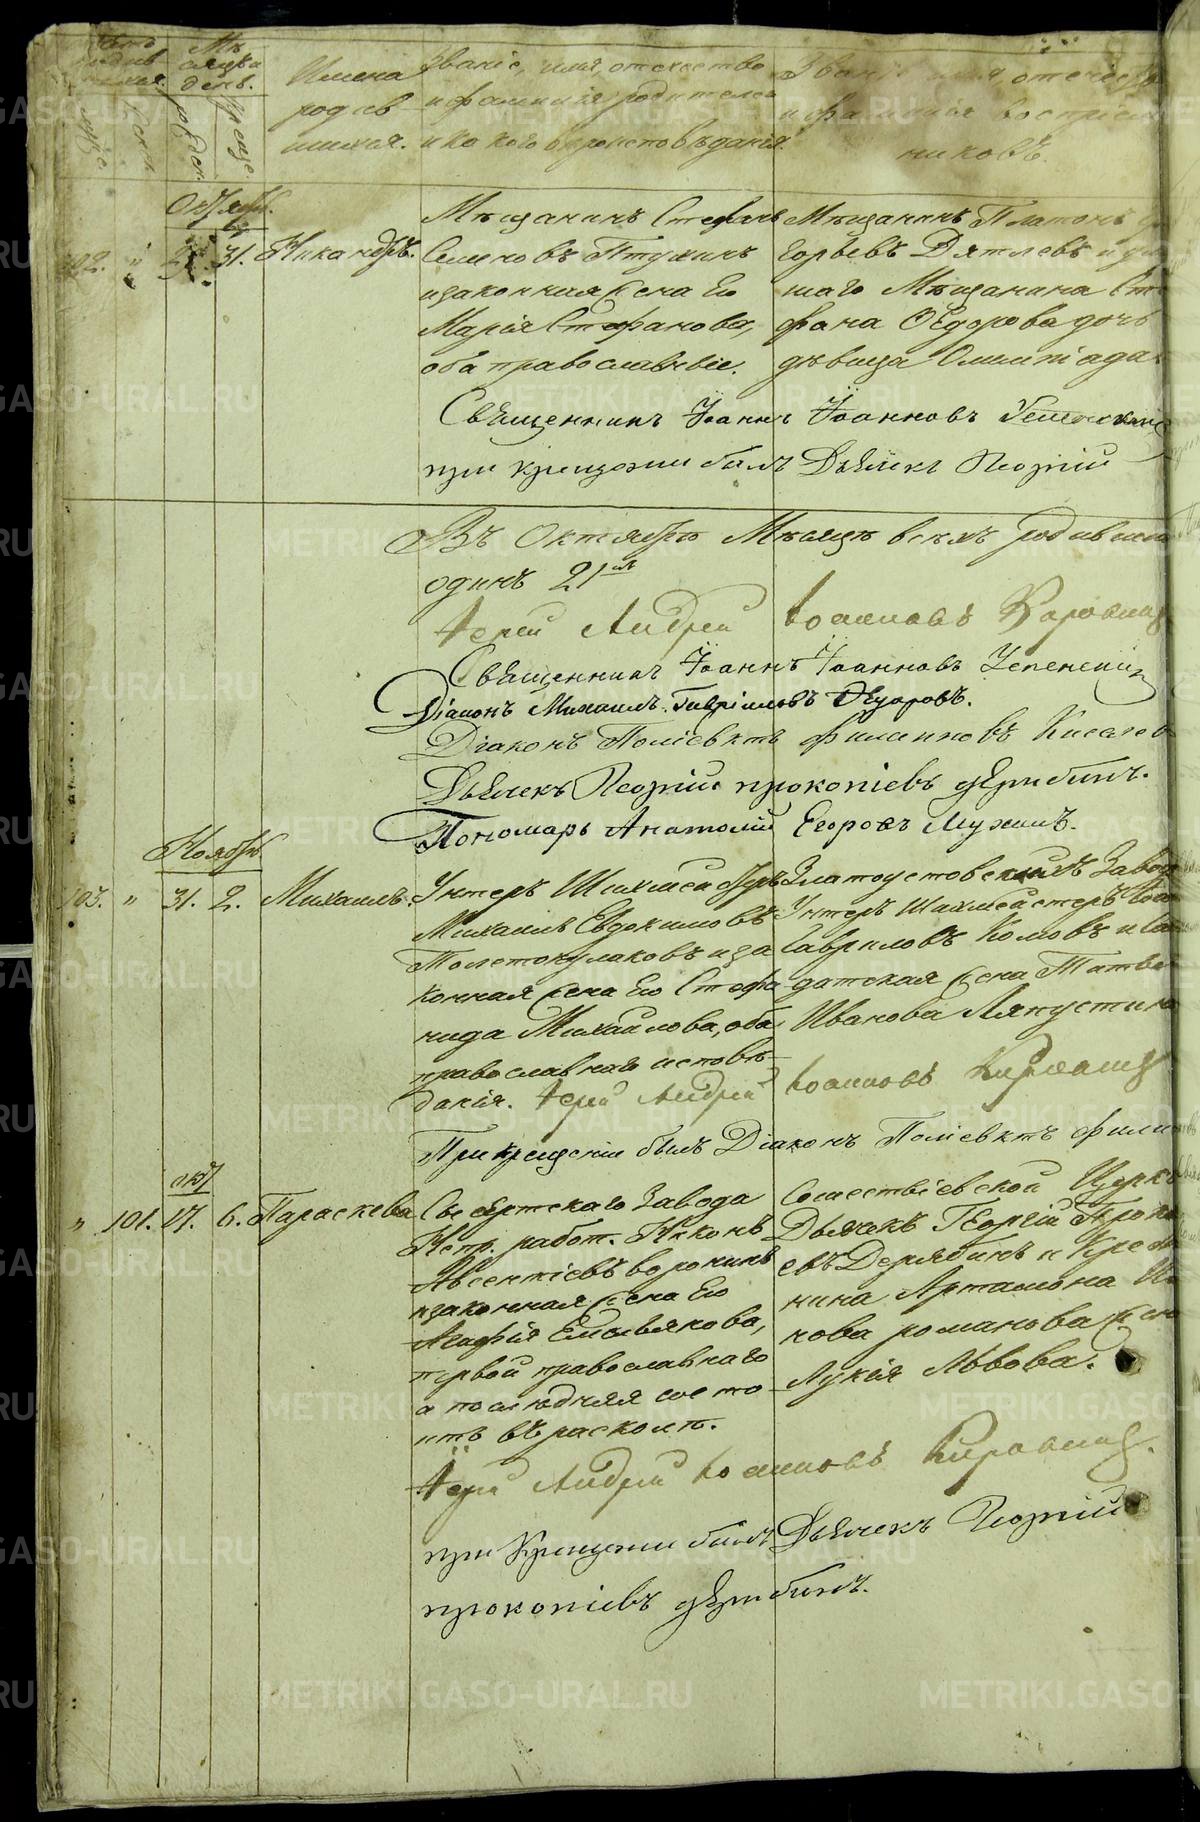 Мѣ
сяцъ и
день.
Имена
родив
шихся.
Званіе, имя, отечество
и фамилія родителей
и какого вѣроисповѣданія.
Званіе, имя, отечество
и фамилія воспріем
никовъ.
Октябрь.
102. " 31. Никандръ.
Мѣщанинъ Стефанъ
Семеновъ Птухинъ
и законная жена его
Марія Стефанова,
оба православные.
Мѣщанинъ Платонъ
Горьевъ Дятлевъ и
шаго Мѣщанина Сте
фана Ѳедорова дочь
дѣвица Олимпіада.
Священникъ Іоаннъ Іоанновъ
при крещеніи былъ Дьячекъ Георгій
Въ Октябрѣ Мѣсяцѣ всѣхъ родившихся
одинъ 21
Іерей Андрей Іоанновъ
Священникъ Іоаннъ Іоанновъ Успенскій
Діаконъ Михаилъ Гавріиловъ Ѳедоровъ.
Діаконъ Поліевктъ Филиповъ Киселев
Дьячекъ Георгій Прокопіевъ Дерябинъ.
Пономарь Анатолій Егоровъ Мухинъ.
Ноябрь
103. " 31. 2. Михаилъ.
Унтеръ Шихмейстеръ
Михаилъ Евдокимовъ
Толстокулаковъ и за
конная жена его Стефа
нида Михайлова, оба
православнаго исповѣ
данія.
Златоустовскихъ Заво
Унтеръ Шихмейстеръ
Гавриловъ Комовъ и Сол
датская жена Татья
Иванова Ляпустина
Іерей Андрей Іоанновъ
При крещеніи былъ Діаконъ Поліевктъ Фили
окт
" 101. 17. 6. Параскева
Сысертскаго Завода
Непр. работ. Никонъ
Авсентіевъ Воронинъ
и законная жена его
Агафія Емельянова,
первой православнаго
а послѣдняя состо
итъ въ расколѣ.
Сошествіевской Церкв
Дьячекъ Георгій Проко
евъ Дерябинъ и Кресть
нина Артамона
кова романова жен
Лукія Львова.
Іерей Андрей Іоанновъ
при Крещеніи былъ Дьячекъ Георгій
прокопіевъ Дерябинъ.
METRIKI.GASO-URAL.RU